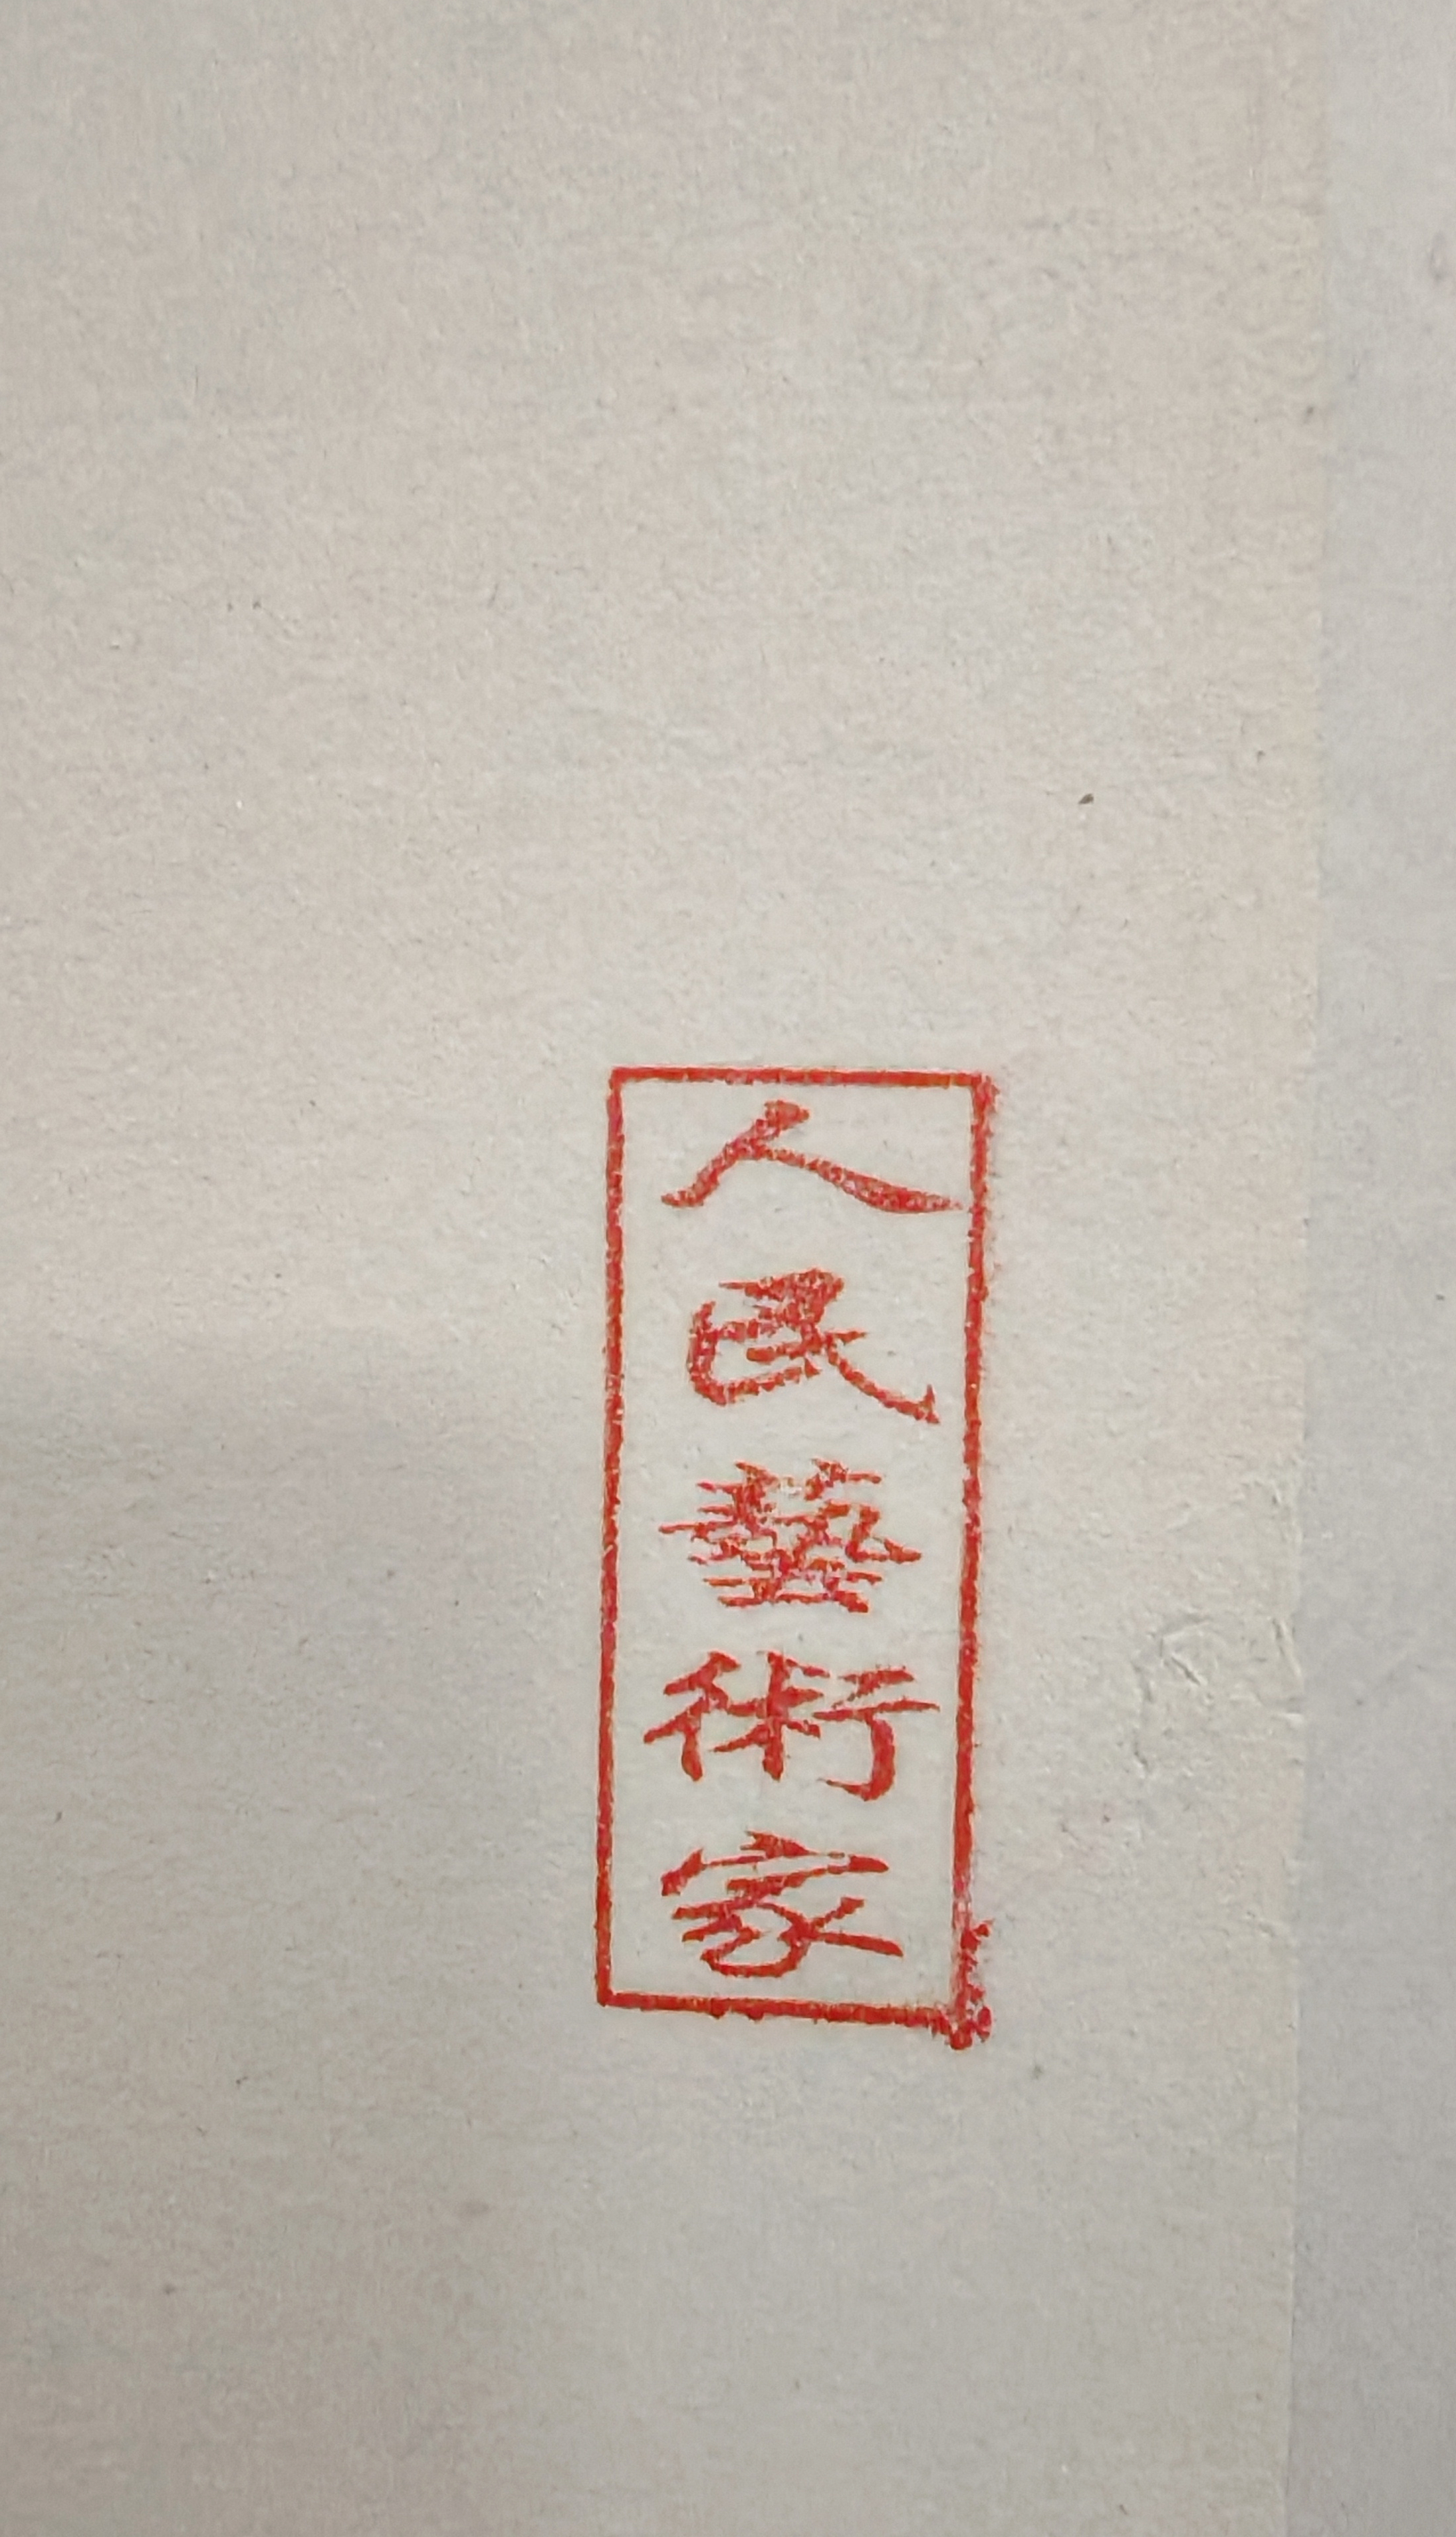 人民藝術家